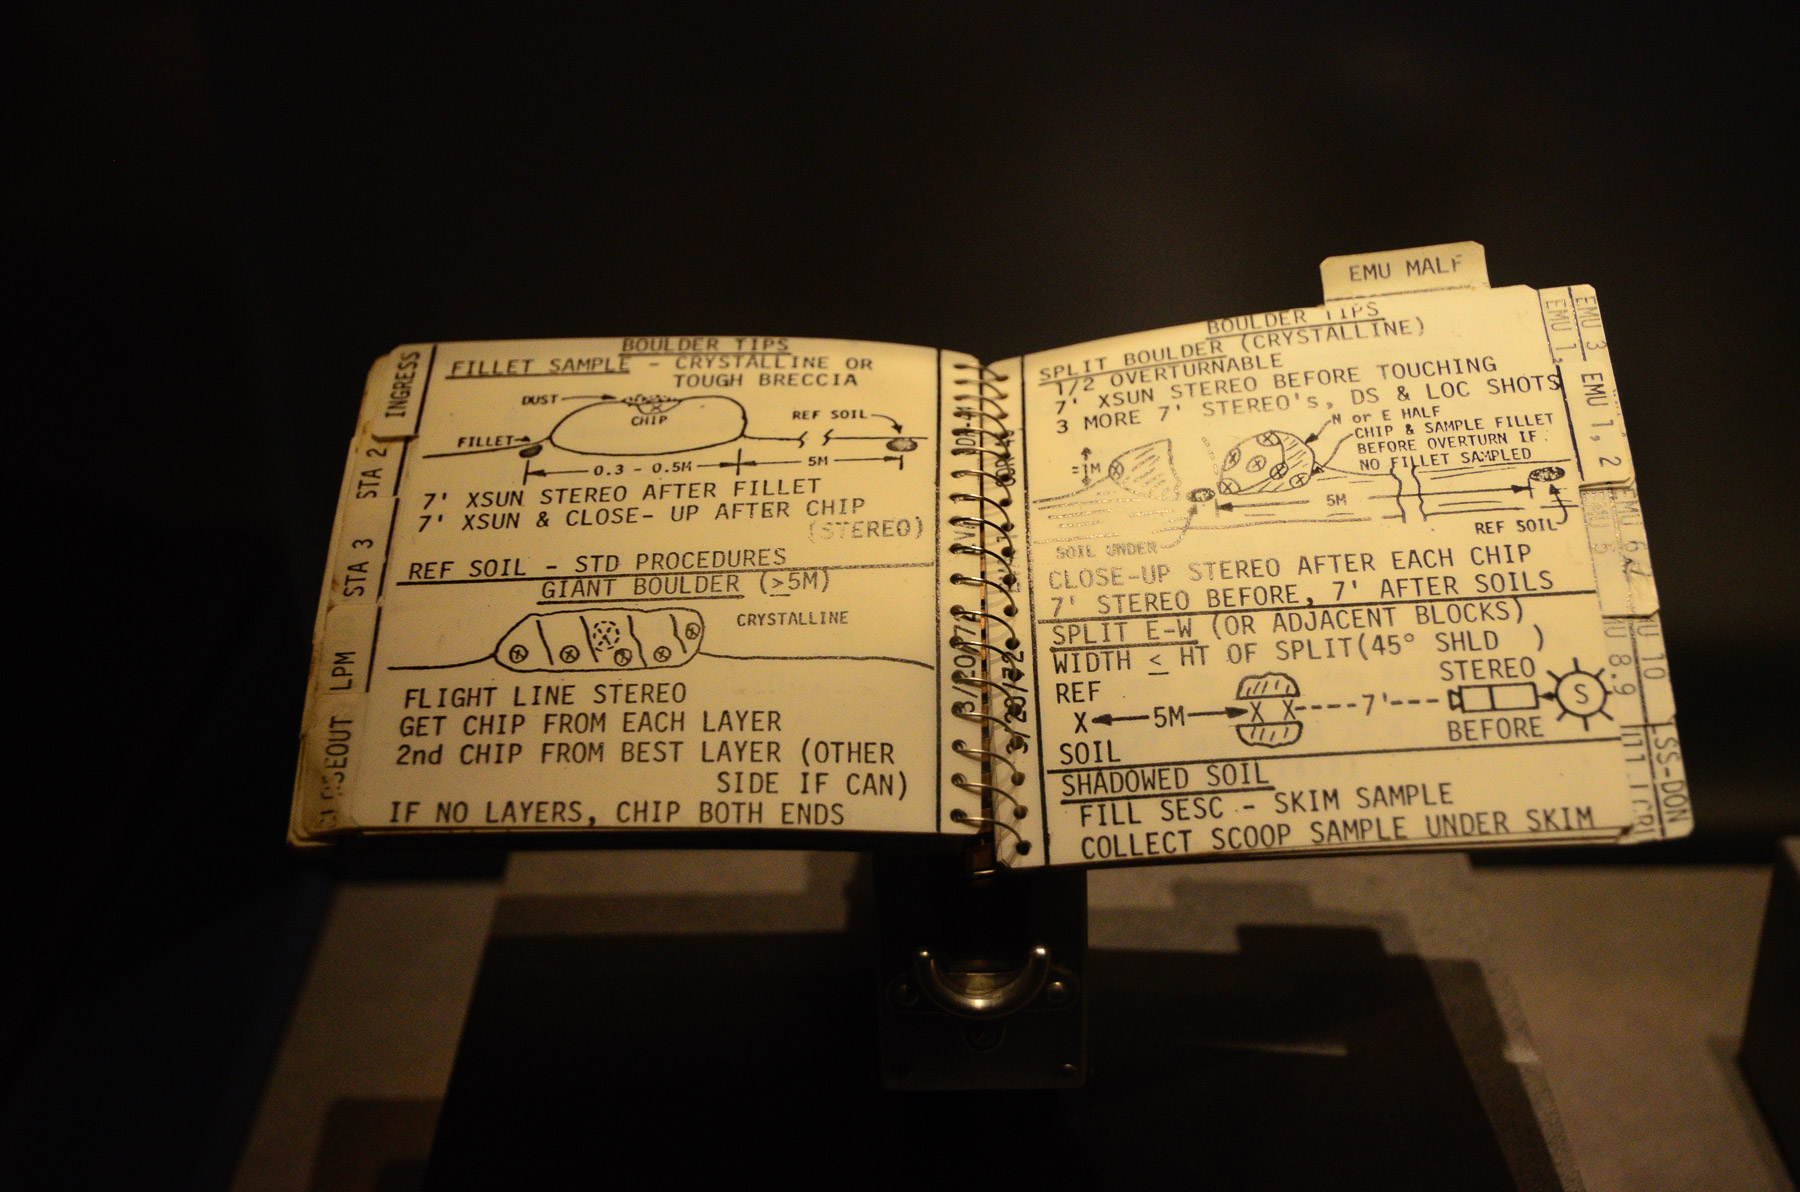 BOULDER TIPS
FILLET SAMPLE - CRYSTALLINE OR
TOUGH BRECCIA
DUST
CHIP
REF SOIL
FILLET
0.3 - 0.5M
5M
7' XSUN STEREO AFTER FILLET
7' XSUN & CLOSE-UP AFTER CHIP
(STEREO)
REF SOIL - STD PROCEDURES
GIANT BOULDER (≥5M)
CRYSTALLINE
FLIGHT LINE STEREO
GET CHIP FROM EACH LAYER
2nd CHIP FROM BEST LAYER (OTHER
SIDE IF CAN)
IF NO LAYERS, CHIP BOTH ENDS
INGRESS
STA 2
STA 3
LPM
CLOSEOUT
3/20/72
3/28/72
EMU MALF
BOULDER TIPS
SPLIT BOULDER (CRYSTALLINE)
1/2 OVERTURNABLE
7' XSUN STEREO BEFORE TOUCHING
3 MORE 7' STEREO's, DS & LOC SHOTS
N or E HALF
CHIP & SAMPLE FILLET
BEFORE OVERTURN IF
NO FILLET SAMPLED
=1M
5M
REF SOIL
SOIL UNDER
CLOSE-UP STEREO AFTER EACH CHIP
7' STEREO BEFORE, 7' AFTER SOILS
SPLIT E-W (OR ADJACENT BLOCKS)
WIDTH ≤ HT OF SPLIT(45° SHLD )
STEREO
REF
X 5M X X 7' S
BEFORE
SOIL
SHADOWED SOIL
FILL SESC - SKIM SAMPLE
COLLECT SCOOP SAMPLE UNDER SKIM
EMU 1
EMU 3
EMU 1, 2
EMU 5
EMU 6
10
8.9
SS-DON